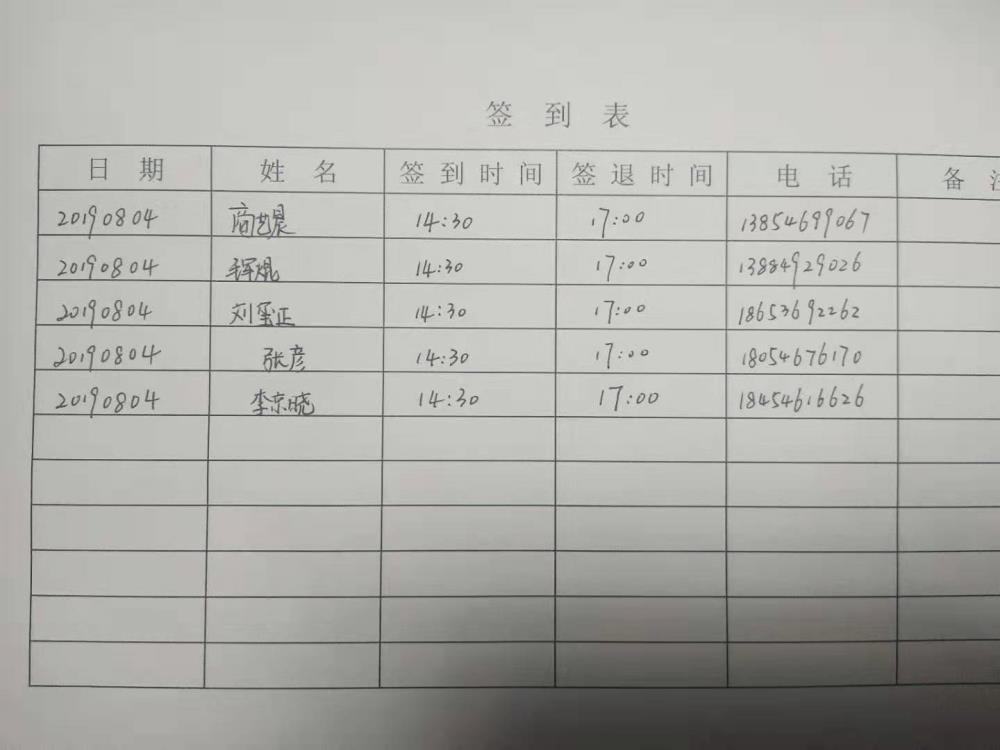 签 到 表
日 期 姓 名 签到时间 签退时间 电 话 备
20190804 商艺晨 14:30 17:00 13854699067
20190804 14:30 17:00 13884929026
20190804 刘玺正 14:30 17:00 18653692262
20190804 张彦 14:30 17:00 18054676170
20190804 李京晓 14:30 17:00 18454616626